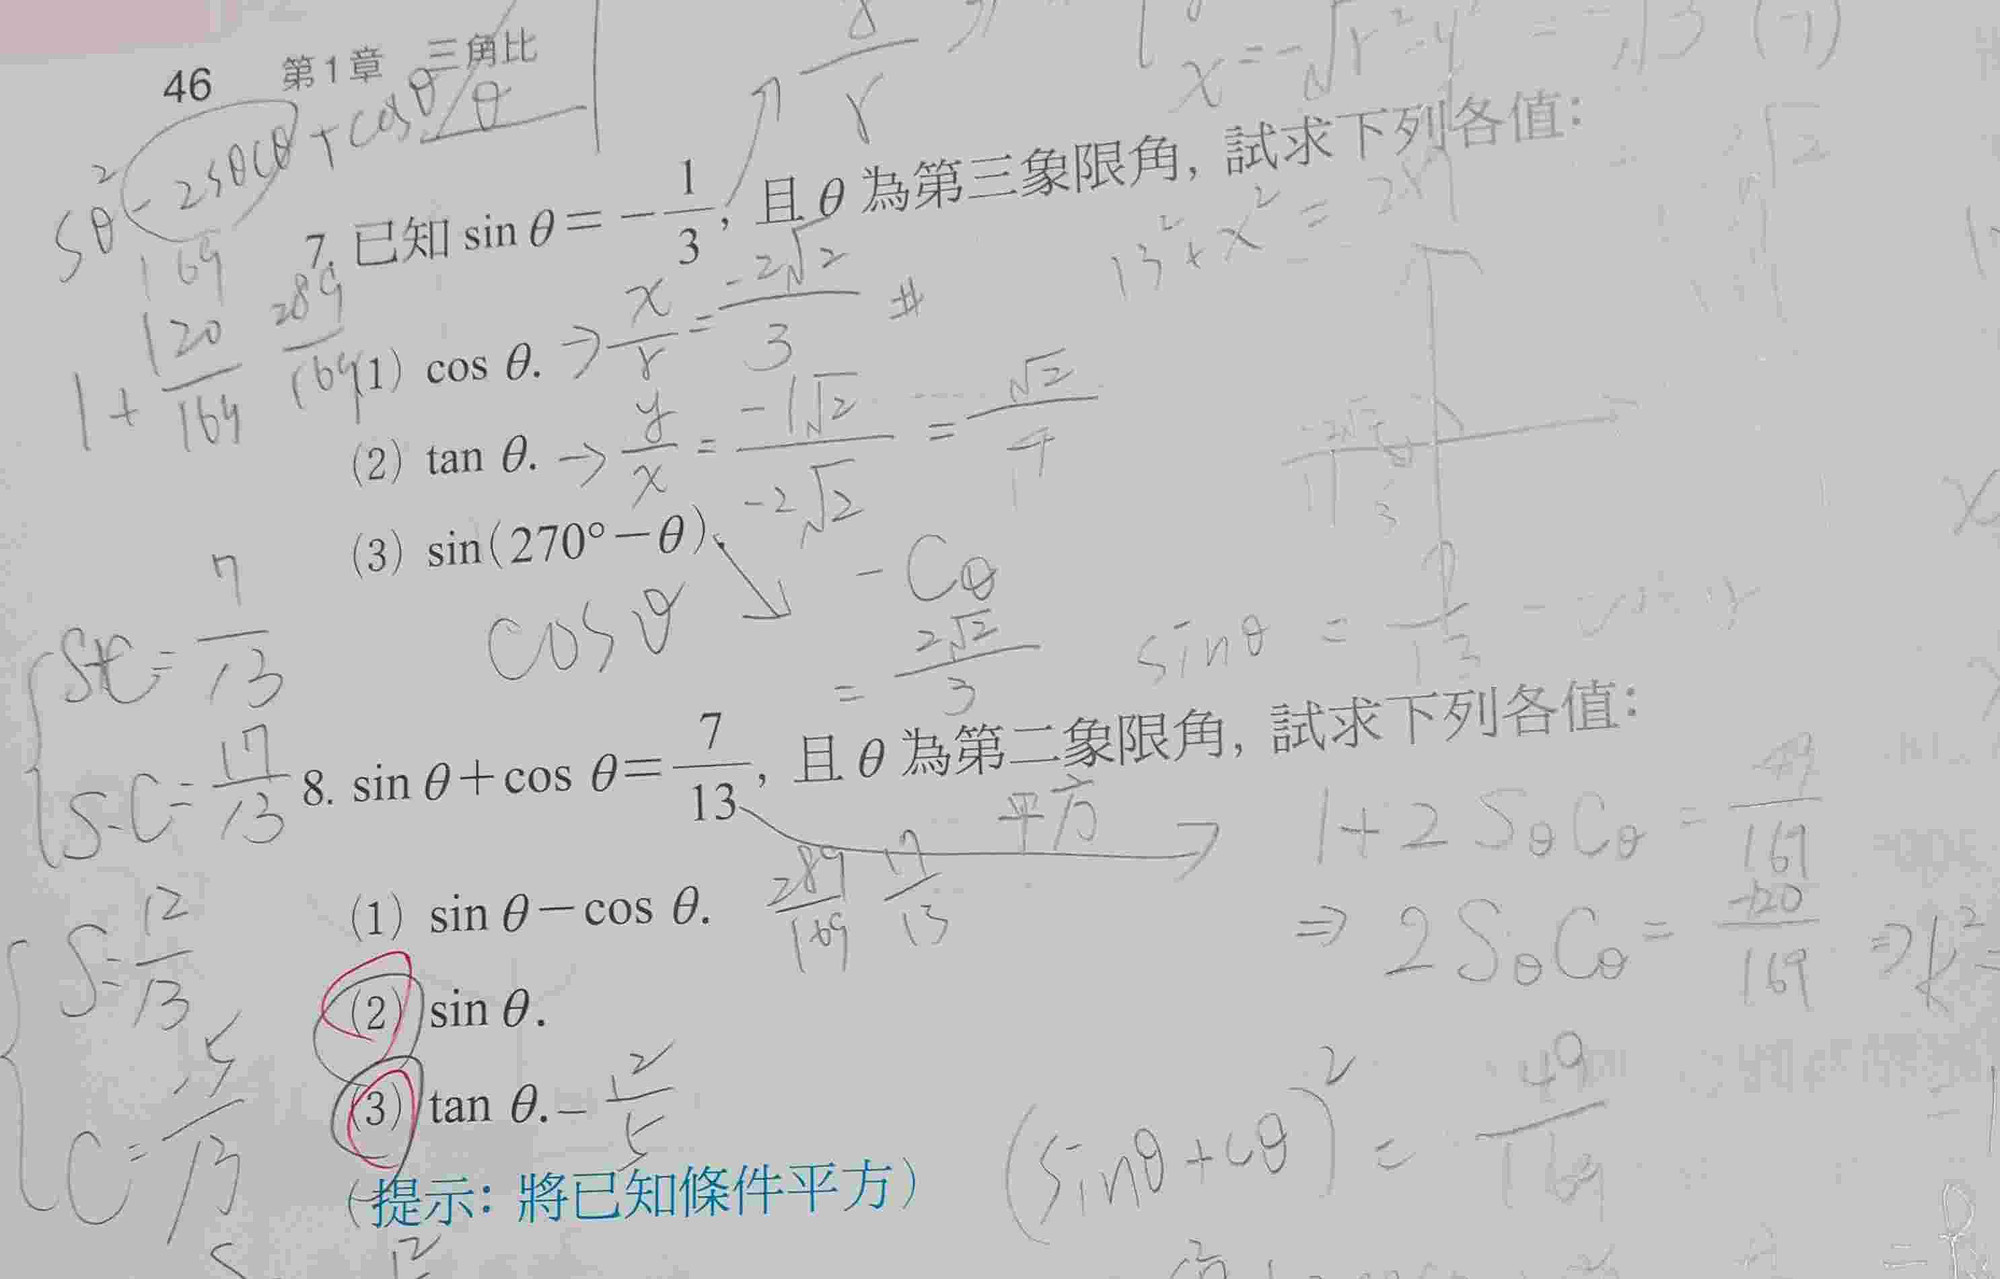 46 第1章 三角比
8/r
x = -√r²-y²
Sθ² - 2SθCθ + Cosθ
169
7. 已知 sin θ = -1/3, 且 θ 為第三象限角, 試求下列各值:
13² + x² =
1 + 120/169 289/169
(1) cos θ. → x/r = -2√2/3 #
(2) tan θ. → y/x = -1√2/-2√2 = √2/4
(3) sin(270°-θ). → -Cθ
cos θ
= 2√2/3
sinθ =
S+C = 7/13
S-C = 17/13
8. sin θ + cos θ = 7/13, 且 θ 為第二象限角, 試求下列各值:
平方 → 1+2SθCθ = 49/169
(1) sin θ - cos θ. 289/169 17/13
⇒ 2SθCθ = -120/169 ⇒ k² =
S = 12/13
(2) sin θ.
C = -5/13
(3) tan θ. -12/5
(sinθ + cθ)² = 49/169
(提示: 將已知條件平方)